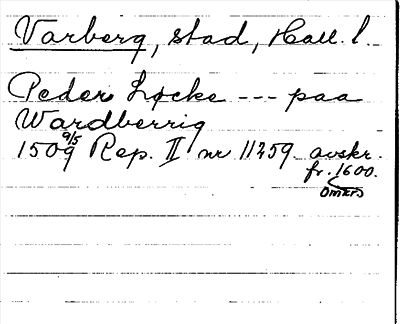 Varberg, stad, Hall. l.
Peder Løcke --- paa
Wardberrig
1509 9/5 Rep. II nr 11259 avskr.
fr. 1600.
omkr.